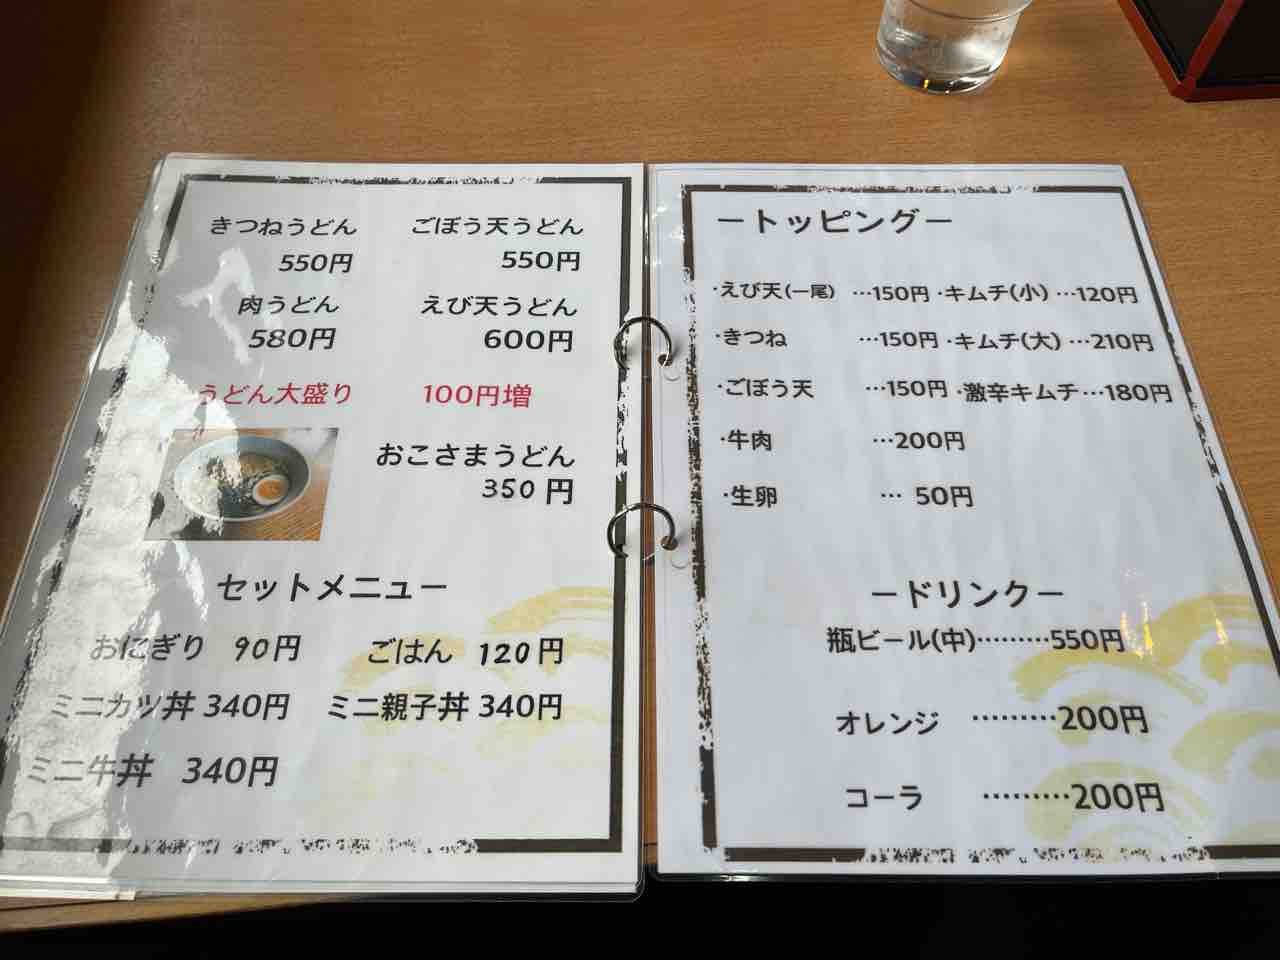 きつねうどん ごぼう天うどん
550円 550円
肉うどん えび天うどん
580円 600円
うどん大盛り 100円増
おこさまうどん
350円
セットメニュー
おにぎり 90円 ごはん 120円
ミニカツ丼 340円 ミニ親子丼 340円
ミニ牛丼 340円
ートッピングー
・えび天(一尾) …150円 ・キムチ(小) …120円
・きつね …150円 ・キムチ(大) …210円
・ごぼう天 …150円 ・激辛キムチ…180円
・牛肉 …200円
・生卵 … 50円
ードリンクー
瓶ビール(中)………550円
オレンジ ………200円
コーラ ………200円